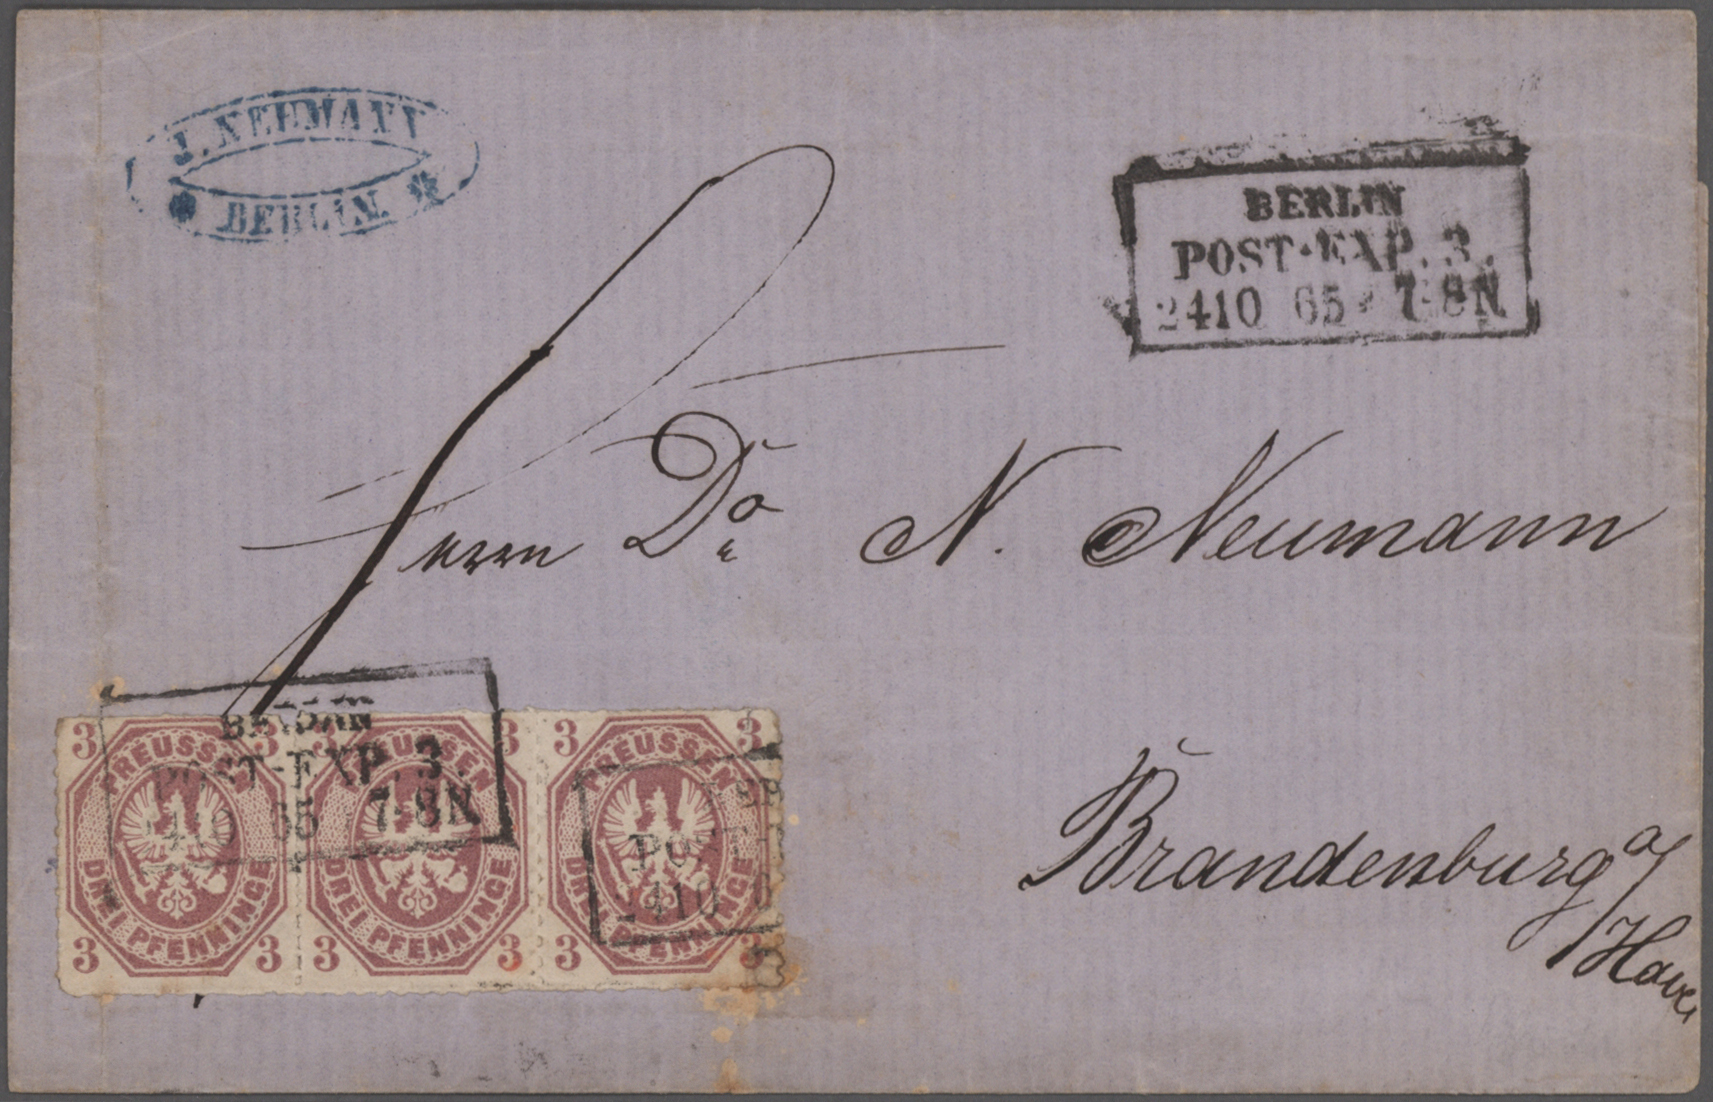 J. NEUMANN
BERLIN.
BERLIN
POST-EXP. 3.
24 10 65 7-8N
Herrn Dr. N. Neumann
Brandenburg a/
Havel
BERLIN
POST-EXP. 3.
24 10 65 7-8N
POST
24 10 6
3 3 3 3 3 3
PREUSSEN PREUSSEN PREUSSEN
DREI PFENNINGE DREI PFENNINGE DREI PFENNINGE
3 3 3 3 3 3